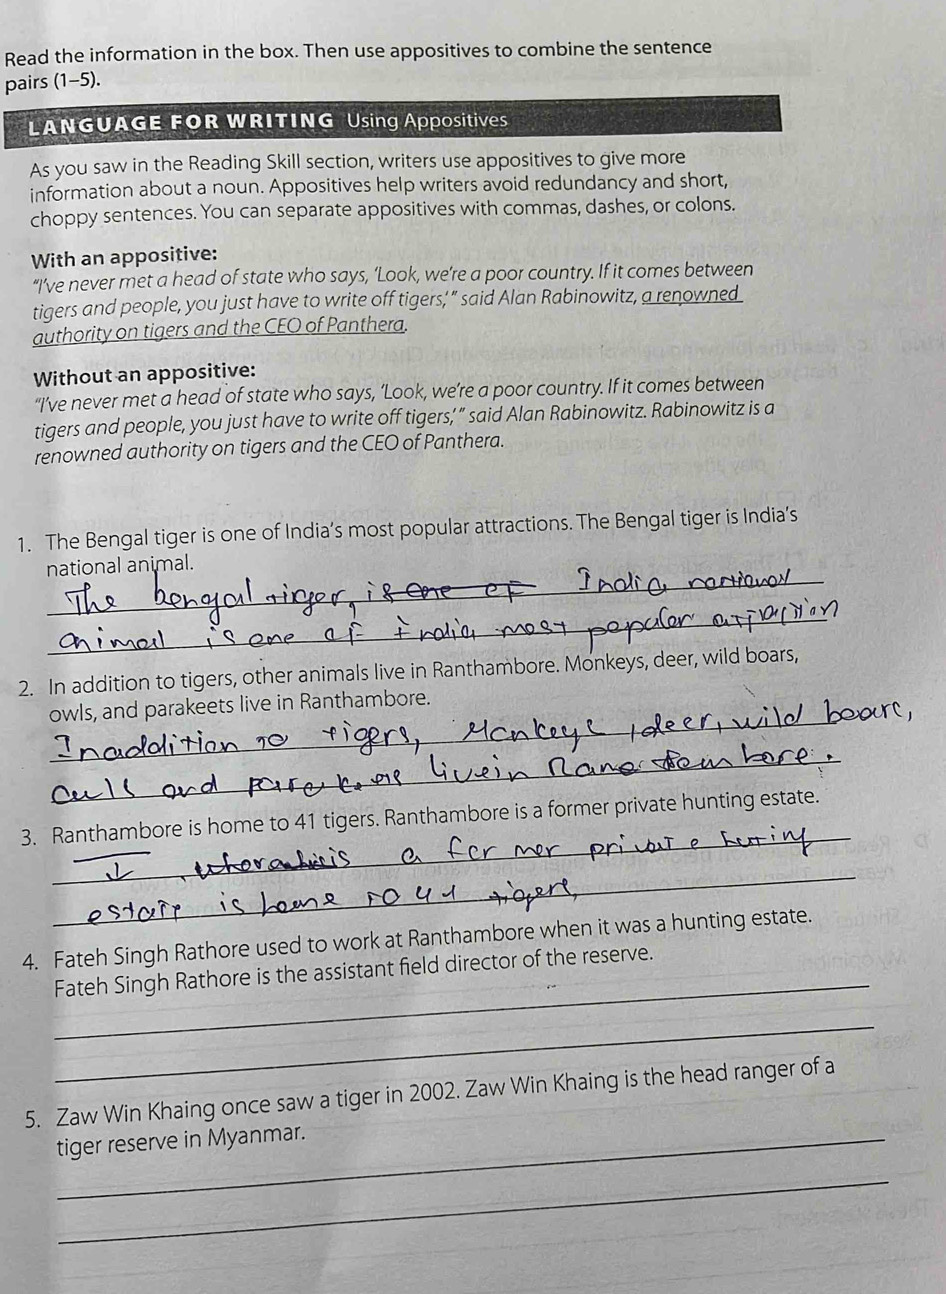 Read the information in the box. Then use appositives to combine the sentence
pairs (1–5).
LANGUAGE FOR WRITING Using Appositives
As you saw in the Reading Skill section, writers use appositives to give more
information about a noun. Appositives help writers avoid redundancy and short,
choppy sentences. You can separate appositives with commas, dashes, or colons.
With an appositive:
“I’ve never met a head of state who says, ‘Look, we’re a poor country. If it comes between
tigers and people, you just have to write off tigers,’ ” said Alan Rabinowitz, a renowned
authority on tigers and the CEO of Panthera.
Without an appositive:
“I’ve never met a head of state who says, ‘Look, we’re a poor country. If it comes between
tigers and people, you just have to write off tigers,’ ” said Alan Rabinowitz. Rabinowitz is a
renowned authority on tigers and the CEO of Panthera.
1. The Bengal tiger is one of India’s most popular attractions. The Bengal tiger is India’s
national animal.
The bengal tirger, is one of India national
animal is one of India most popular
2. In addition to tigers, other animals live in Ranthambore. Monkeys, deer, wild boars,
owls, and parakeets live in Ranthambore.
Inaddition to tigers, Mankeys, deer, wild boars,
and livein
3. Ranthambore is home to 41 tigers. Ranthambore is a former private hunting estate.
↓ a for mer private
is home to 41 tigers,
4. Fateh Singh Rathore used to work at Ranthambore when it was a hunting estate.
Fateh Singh Rathore is the assistant field director of the reserve.
5. Zaw Win Khaing once saw a tiger in 2002. Zaw Win Khaing is the head ranger of a
tiger reserve in Myanmar.